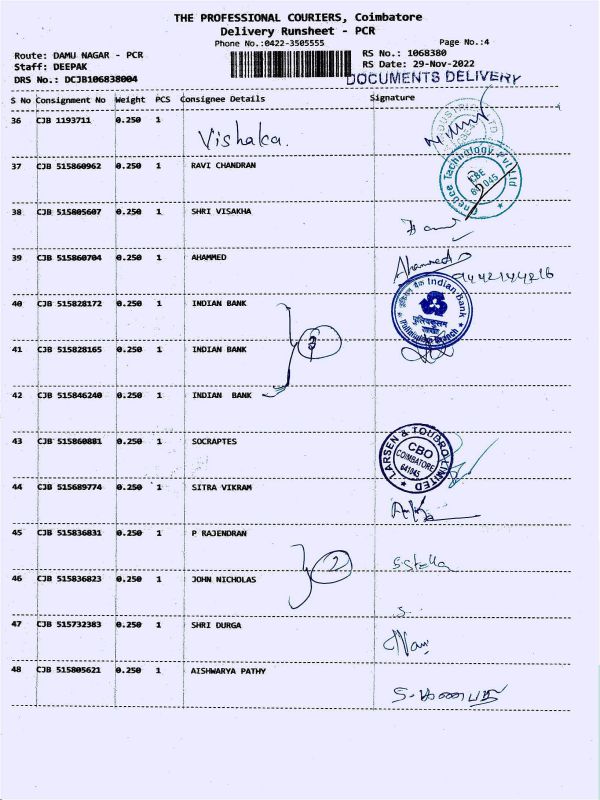 THE PROFESSIONAL COURIERS, Coimbatore
Delivery Runsheet - PCR
Phone No.:0422-3505555
Page No.:4
Route: DAMU NAGAR - PCR
RS No.: 1068380
Staff: DEEPAK
RS Date: 29-Nov-2022
DRS No.: DCJB106838004
DOCUMENTS DELIVERY
S No Consignment No Weight PCS Consignee Details Signature
36 CJB 1193711 0.250 1
Vishaka.
37 CJB 515860962 0.250 1 RAVI CHANDRAN
Technology Pvt Ltd
CBE
641045
38 CJB 515805607 0.250 1 SHRI VISAKHA
39 CJB 515860704 0.250 1 AHAMMED
Ahammed
9442144216
40 CJB 515828172 0.250 1 INDIAN BANK
इंडियन बैंक Indian Bank
Branch
41 CJB 515828165 0.250 1 INDIAN BANK
42 CJB 515846240 0.250 1 INDIAN BANK
43 CJB 515860881 0.250 1 SOCRAPTES
LARSEN & TOUBRO LIMITED
CBO
COIMBATORE
641045
44 CJB 515689774 0.250 1 SITRA VIKRAM
45 CJB 515836831 0.250 1 P RAJENDRAN
2
S.Stella
46 CJB 515836823 0.250 1 JOHN NICHOLAS
S.
47 CJB 515732383 0.250 1 SHRI DURGA
48 CJB 515805621 0.250 1 AISHWARYA PATHY